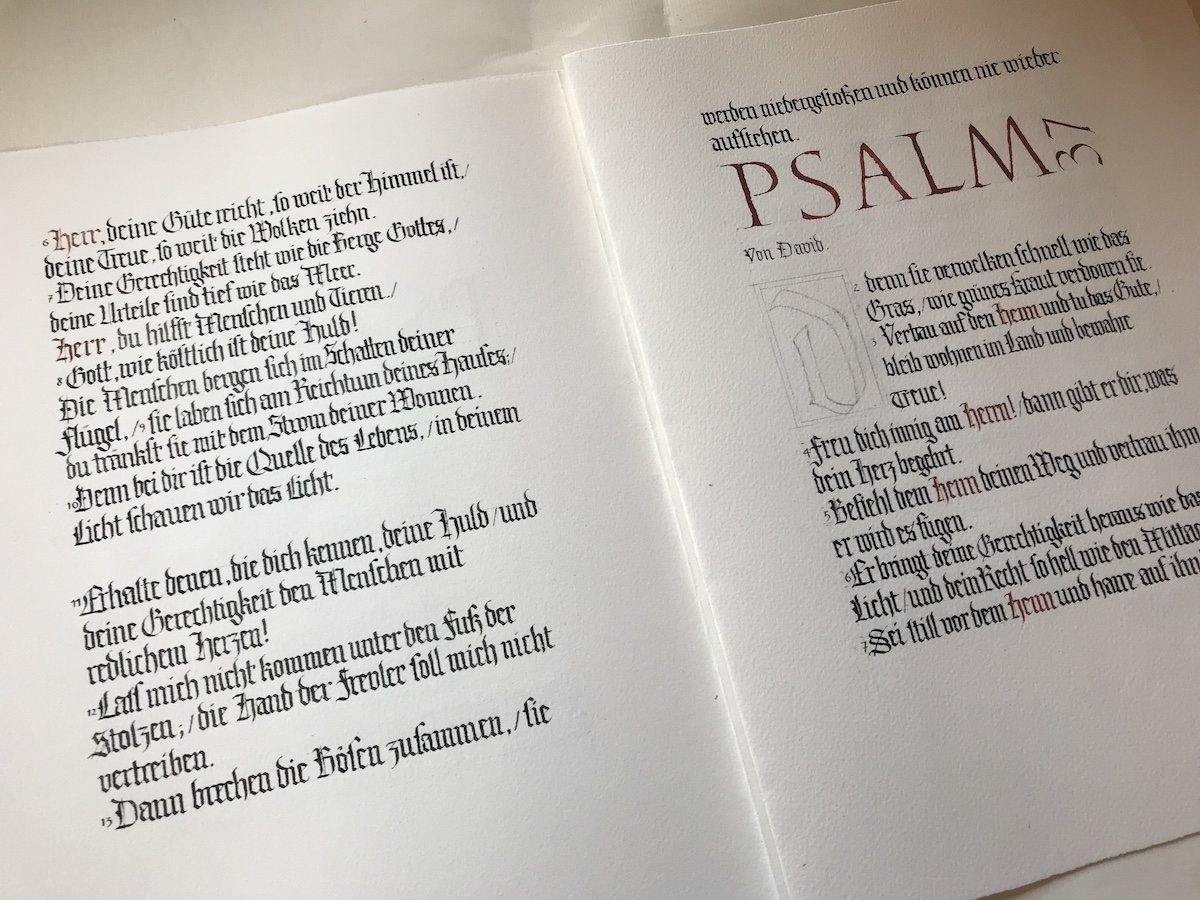 6 Herr, deine Güte reicht, so weit der Himmel ist, /
deine Treue, so weit die Wolken ziehn.
7 Deine Gerechtigkeit steht wie die Berge Gottes, /
deine Urteile sind tief wie das Meer.
Herr, du hilfst Menschen und Tieren. /
8 Gott, wie köstlich ist deine Huld!
Die Menschen bergen sich im Schatten deiner
Flügel, / 9 sie laben sich am Reichtum deines Hauses; /
du tränkst sie mit dem Strom deiner Wonnen.
10 Denn bei dir ist die Quelle des Lebens, / in deinem
Licht schauen wir das Licht.
11 Erhalte denen, die dich kennen, deine Huld / und
deine Gerechtigkeit den Menschen mit
redlichem Herzen!
12 Lass mich nicht kommen unter den Fuß der
Stolzen; / die Hand der Frevler soll mich nicht
vertreiben.
13 Dann brechen die Bösen zusammen, / sie
werden niedergestoßen und können nie wieder
aufstehen.
PSALM 37
Von David.
D
2 denn sie verwelken schnell wie das
Gras, / wie grünes Kraut verdorren sie.
3 Vertrau auf den Herrn und tu das Gute, /
bleib wohnen im Land und bewahre
Treue!
4 Freu dich innig am Herrn! / dann gibt er dir, was
dein Herz begehrt.
5 Befiehl dem Herrn deinen Weg und vertrau ihm
er wird es fügen.
6 Er bringt deine Gerechtigkeit heraus wie das
Licht / und dein Recht so hell wie den Mittag
7 Sei still vor dem Herrn und harre auf ihn